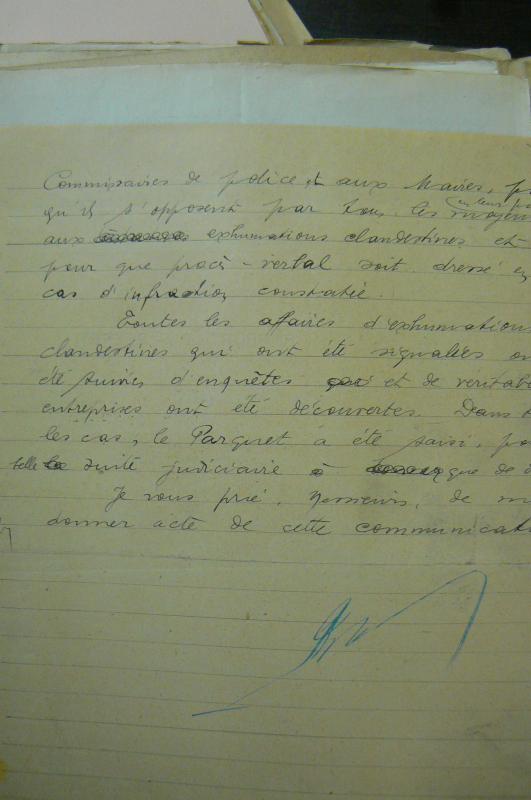 Commissaires de police et aux Maires, p
qu'ils s'opposent par tous les moyen en leur
aux exhumations clandestines et
pour que procès-verbal soit dressé en
cas d'infraction constatée.
Toutes les affaires d'exhumations
clandestines qui ont été signalées on
été suivies d'enquêtes et de véritab
entreprises ont été découvertes. Dans t
les cas, le Parquet a été saisi, po
telle suite judiciaire que de d
Je vous prie, Messieurs, de m
donner acte de cette communicati